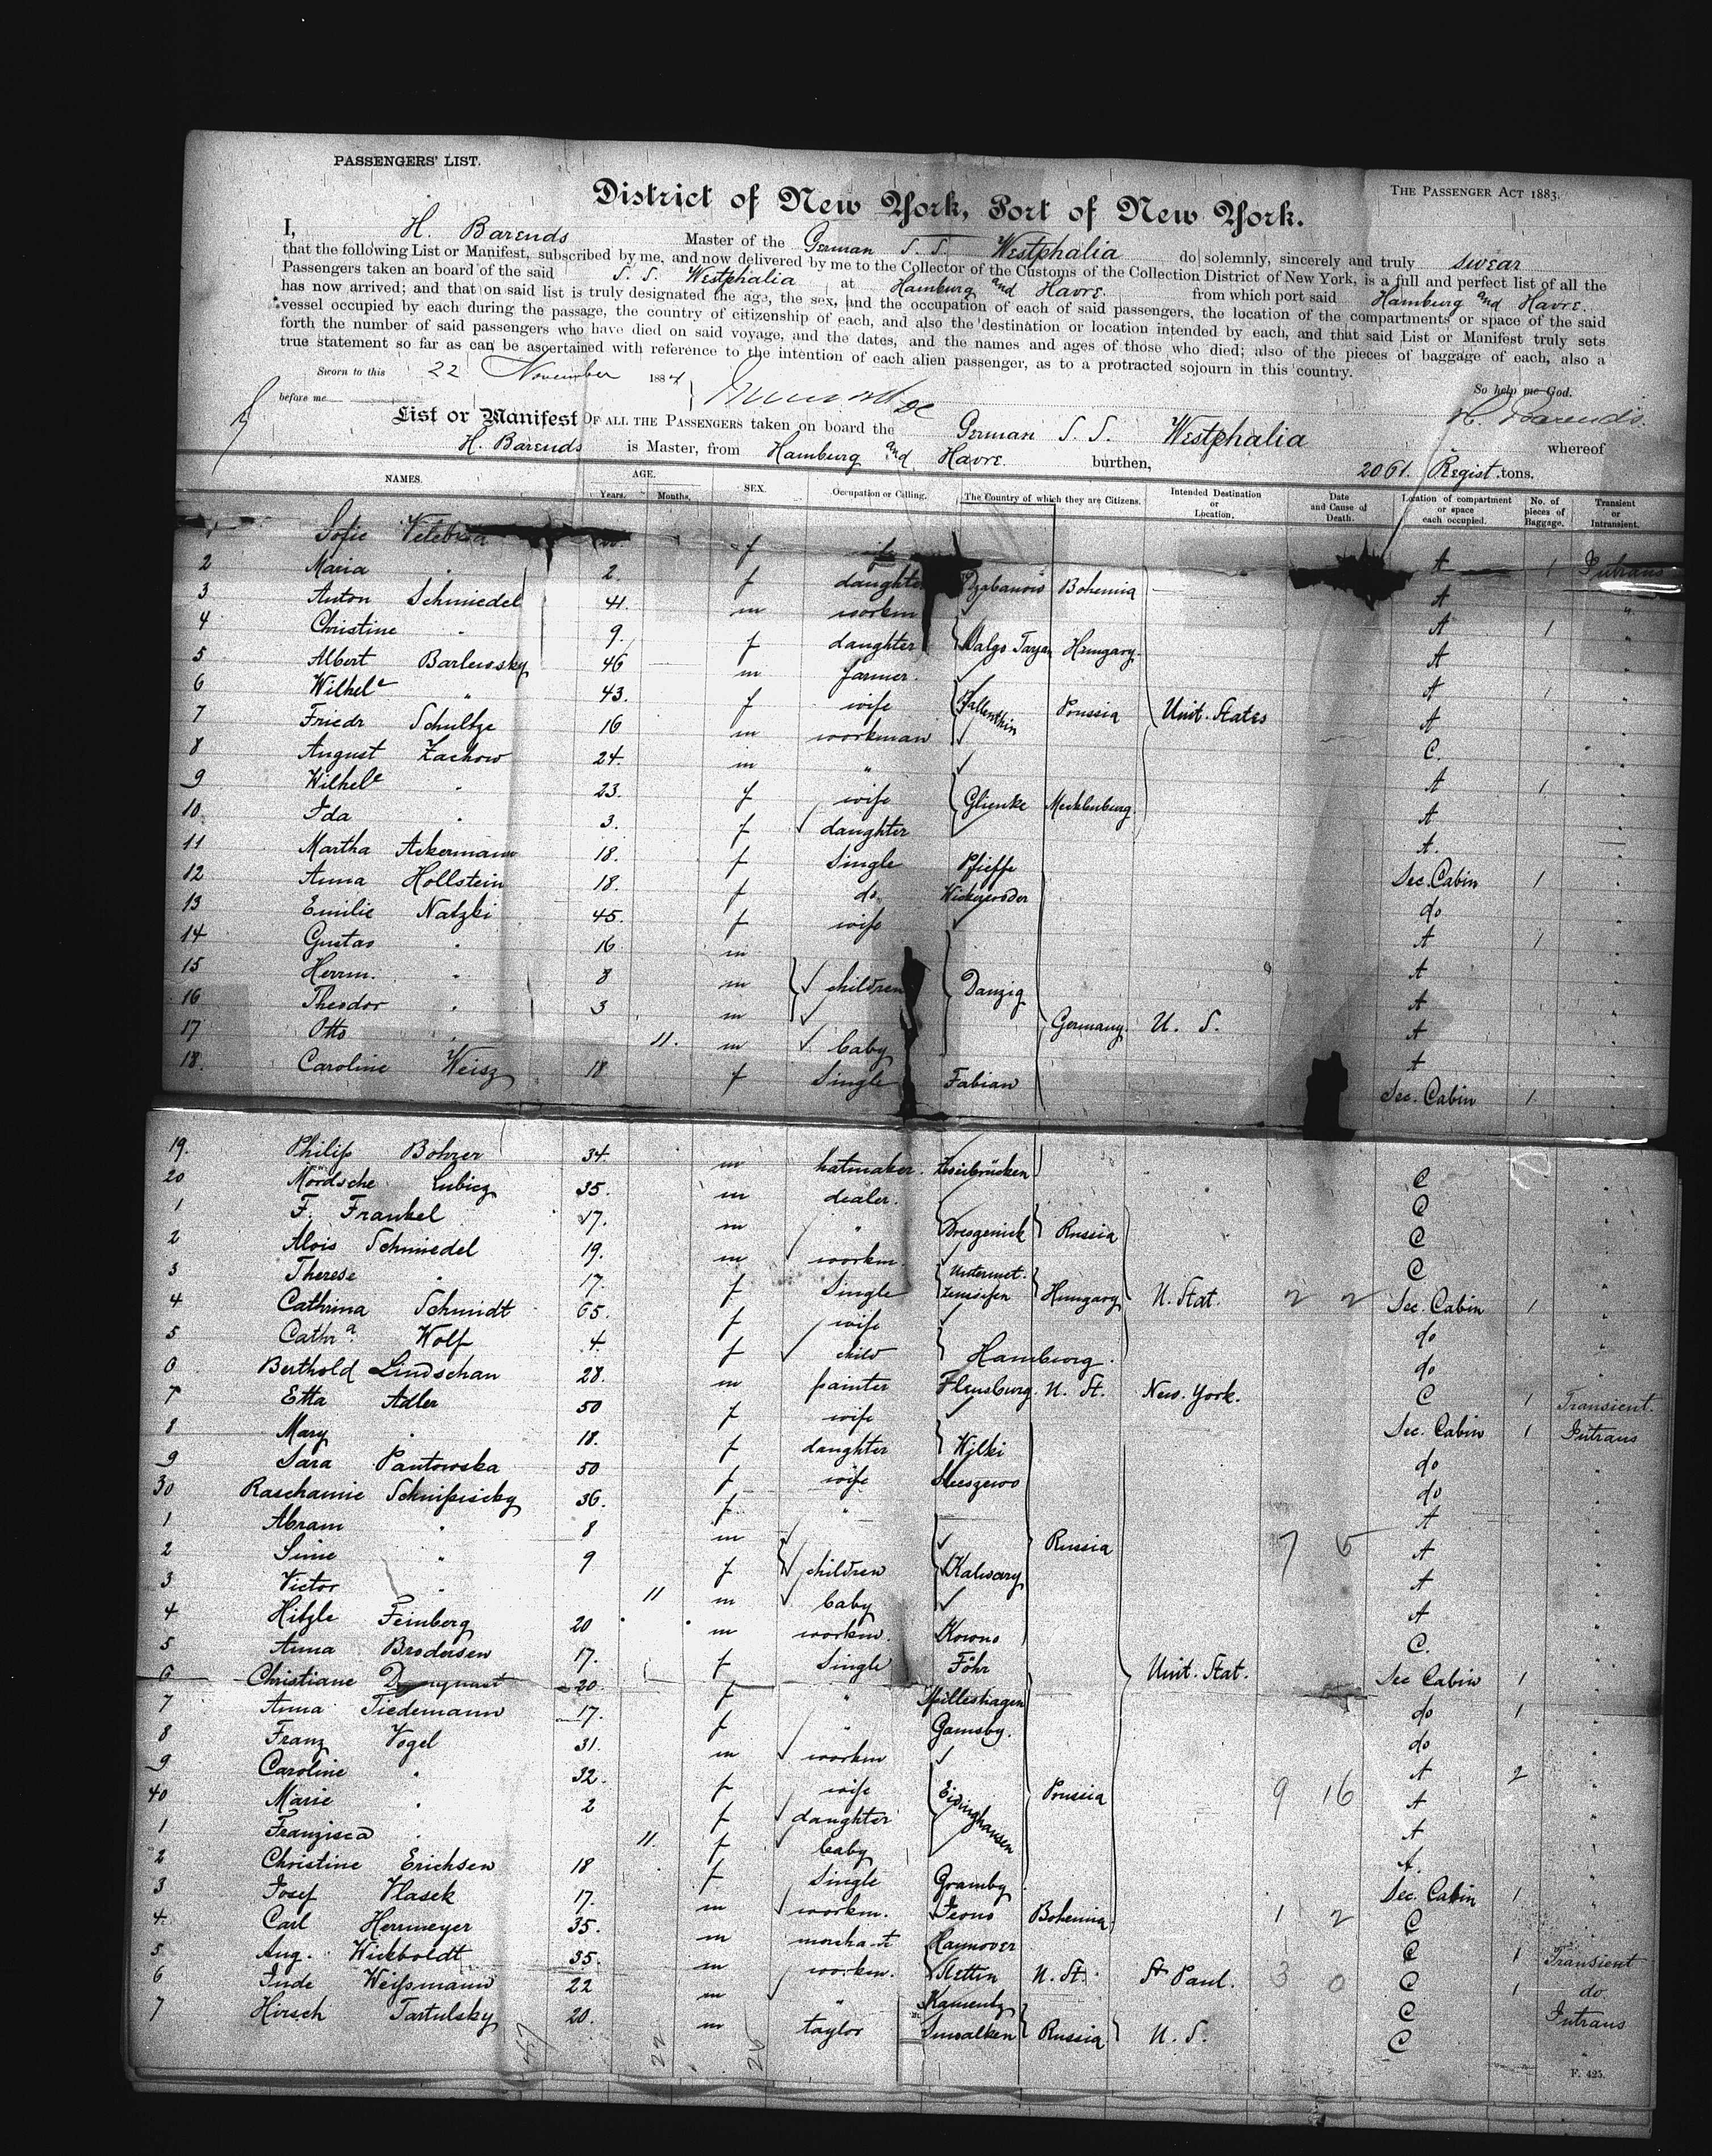 PASSENGERS' LIST.
THE PASSENGER ACT 1883.
District of New York, Port of New York.
I, H. Barends Master of the German S. S. Westphalia do solemnly, sincerely and truly swear
that the following List or Manifest, subscribed by me, and now delivered by me to the Collector of the Customs of the Collection District of New York, is a full and perfect list of all the
Passengers taken an board of the said S. S. Westphalia at Hamburg and Havre. from which port said Hamburg and Havre.
has now arrived; and that on said list is truly designated the age, the sex, and the occupation of each of said passengers, the location of the compartments or space of the said
vessel occupied by each during the passage, the country of citizenship of each, and also the destination or location intended by each, and that said List or Manifest truly sets
forth the number of said passengers who have died on said voyage, and the dates, and the names and ages of those who died; also of the pieces of baggage of each, also a
true statement so far as can be ascertained with reference to the intention of each alien passenger, as to a protracted sojourn in this country.
Sworn to this 22 November 1884 So help me God.
before me H. Barends.
List or Manifest OF ALL THE PASSENGERS taken on board the German S. S. Westphalia whereof
H. Barends is Master, from Hamburg and Havre. burthen, 2061. Regist. tons.
NAMES. AGE. Years. Months. SEX. Occupation or Calling. The Country of which they are Citizens. Intended Destination or Location. Date and Cause of Death. Location of compartment or space each occupied. No. of pieces of Baggage. Transient or Intransient.
1 Sofie f A 1 Intrans
2 Maria " 2. f daughter Bohemia A "
3 Anton Schmiedel 41. m workm A 1 "
4 Christine " 9. f daughter Hungary. A "
5 Albert Barlewsky 46 m farmer. A 1 "
6 Wilhele " 43. f wife Prussia Unit. States A "
7 Friedr Schultze 16 m workman C. "
8 August Zachow 24. m " A 1 "
9 Wilhele " 23. f wife Glienke Mecklenburg. A "
10. Ida " 3. f daughter A.
11 Martha Ackermann 18. f Single Pfieffe Sec. Cabin 1 "
12 Anna Hollstein 18. f do. do "
13 Emilie Natzki 45. f wife A 1 "
14 Gustav " 16 m A "
15 Herrm. " 8 m children Danzig A "
16 Theodor " 3 m A "
17 Otto " 11. m baby Germany. U. S. A "
18. Caroline Weisz 18 f Single Fabian Sec. Cabin 1 "
19. Philip Bohrer 34. m hatmaker. Zweibrücken C "
20 Mordsche Lubicz 35. m dealer. C "
1 F. Frankel 17. m " Russia C "
2 Alois Schmiedel 19. m workm C "
3 Therese " 17. f Single Hungary U. Stat. 2 2 Sec. Cabin 1 "
4 Cathrina Schmidt 65. f wife do "
5 Cathr.a Wolf 4. f child Hamburg. do "
6 Berthold Lindschau 28. m painter Flensburg. U. St. New. York. C 1 Transient.
7 Etta Adler 50 f wife Sec. Cabin 1 Intrans
8 Mary " 18. f daughter Wilki do "
9 Sara Pantowska 50 f wife do "
30 36. f " A "
1 Abram " 8 m Russia 7 5 A "
2 Sime " 9 f children Kalwary A "
3 Victor " 11 m baby A "
4 Hitzle Feinberg 20 m workm. Kowno C. "
5 Anna Brodersen 17. f Single Föhr Unit. Stat. Sec Cabin 1 "
6 Christiane 20. f " Milleshagen do 1 "
7 Anna Tiedemann 17. f " Gamsby. do "
8 Franz Vogel 31. m workm A 2 "
9 Caroline " 32. f wife Eidinghausen Prussia 9 16 A "
40 Marie " 2 f daughter A "
1 Franzisca " 11. f baby A. "
2 Christine Erichsen 18 f Single Gramby Sec. Cabin 1 "
3 Josef Vlasek 17. m workm. Bohemia. 1 2 C "
4. Carl Herrmeyer 35. m merchant Hannover C 1 Transient
5 Aug. Wickboldt 35. m workm. Stettin U. St. St Paul. 3 0 C 1 do
6 Jude Weissmann 22 m " Kamentz C Intrans
7 Hirsch Tartulsky 20. m taylor Suwalken Russia U. S. C "
47 22 26
F. 425.